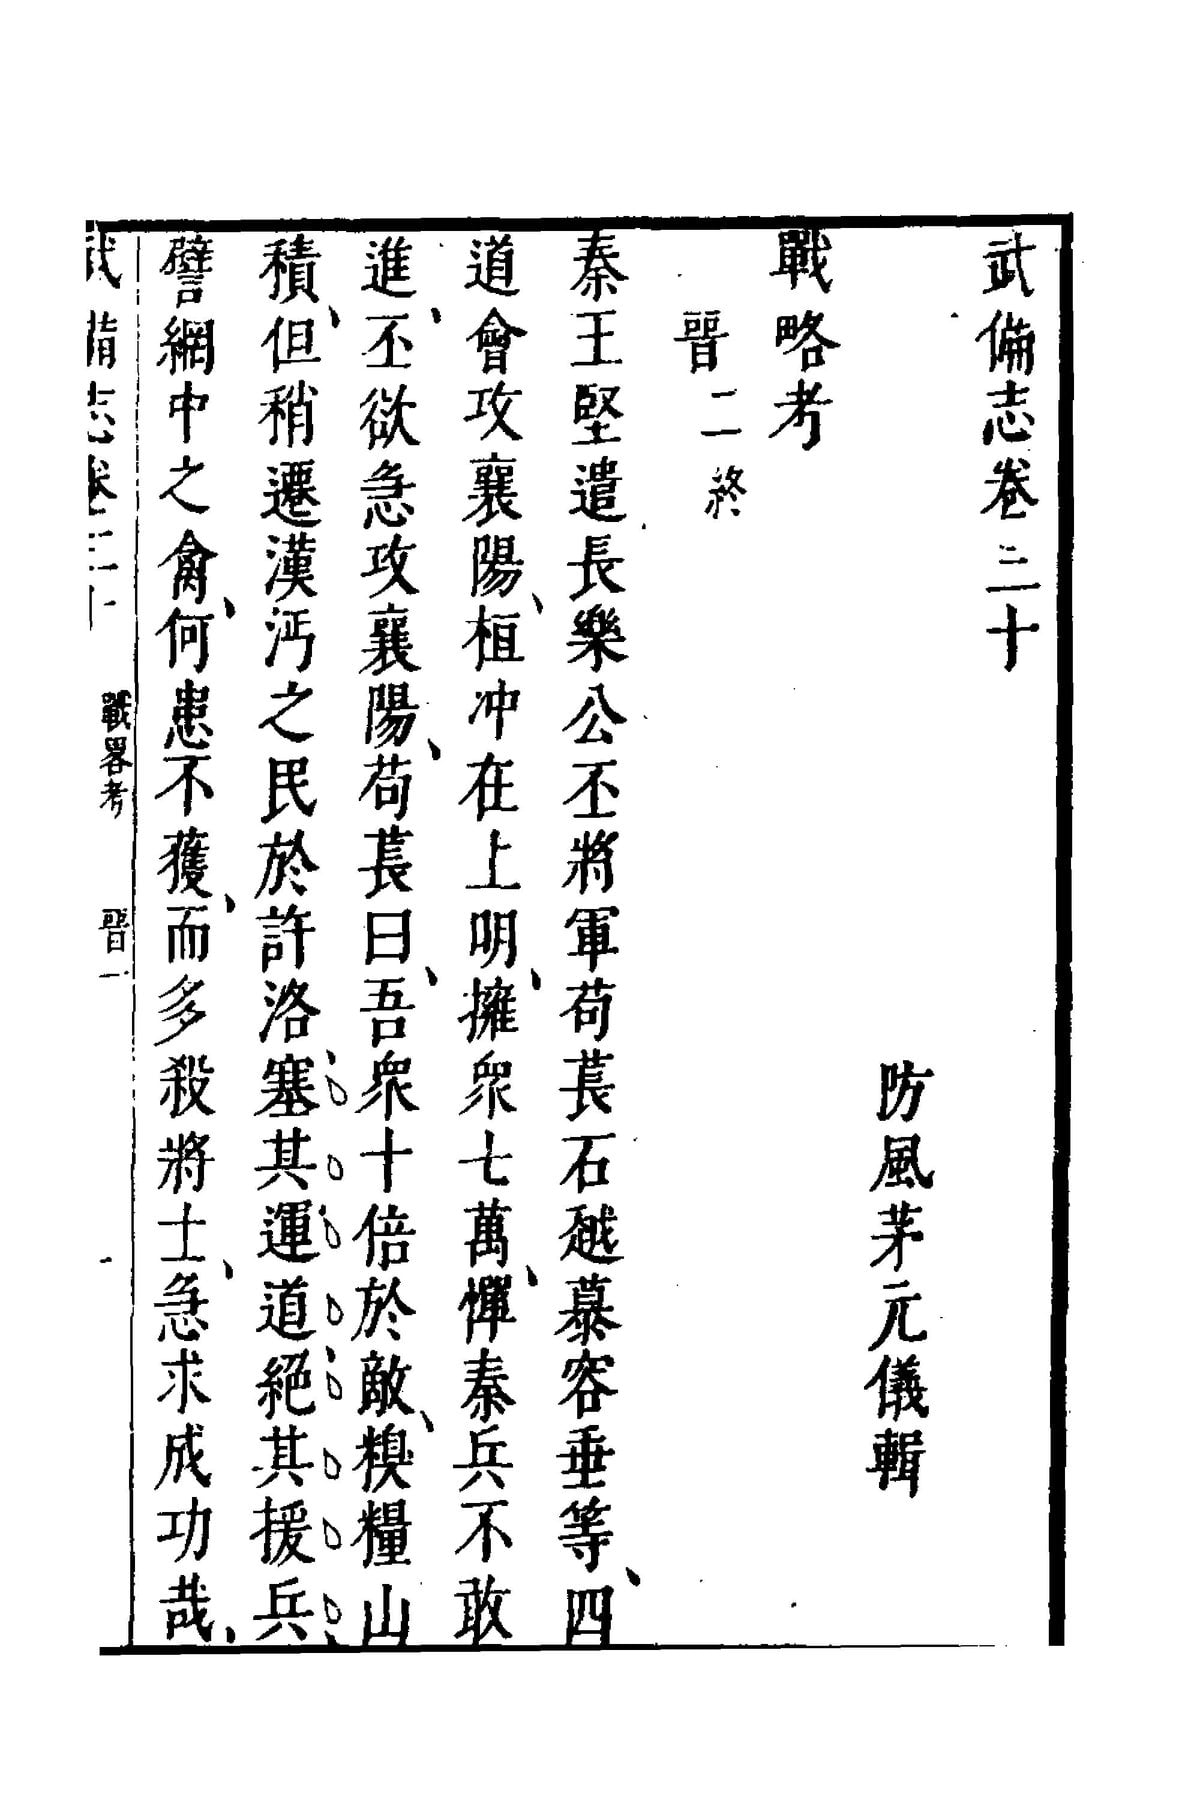 武備志卷三十
防風茅元儀輯
戰略考
晉二終
秦王堅遣長樂公丕將軍苟萇石越慕容垂等、四
道會攻襄陽、桓冲在上明、擁衆七萬、憚秦兵不敢
進、丕欲急攻襄陽、苟萇曰、吾衆十倍於敵、糗糧山
積、但稍遷漢沔之民於許洛、塞其運道、絕其援兵、
譬網中之禽、何患不獲、而多殺將士、急求成功哉、
武備志卷三十 戰畧考 晉二 一